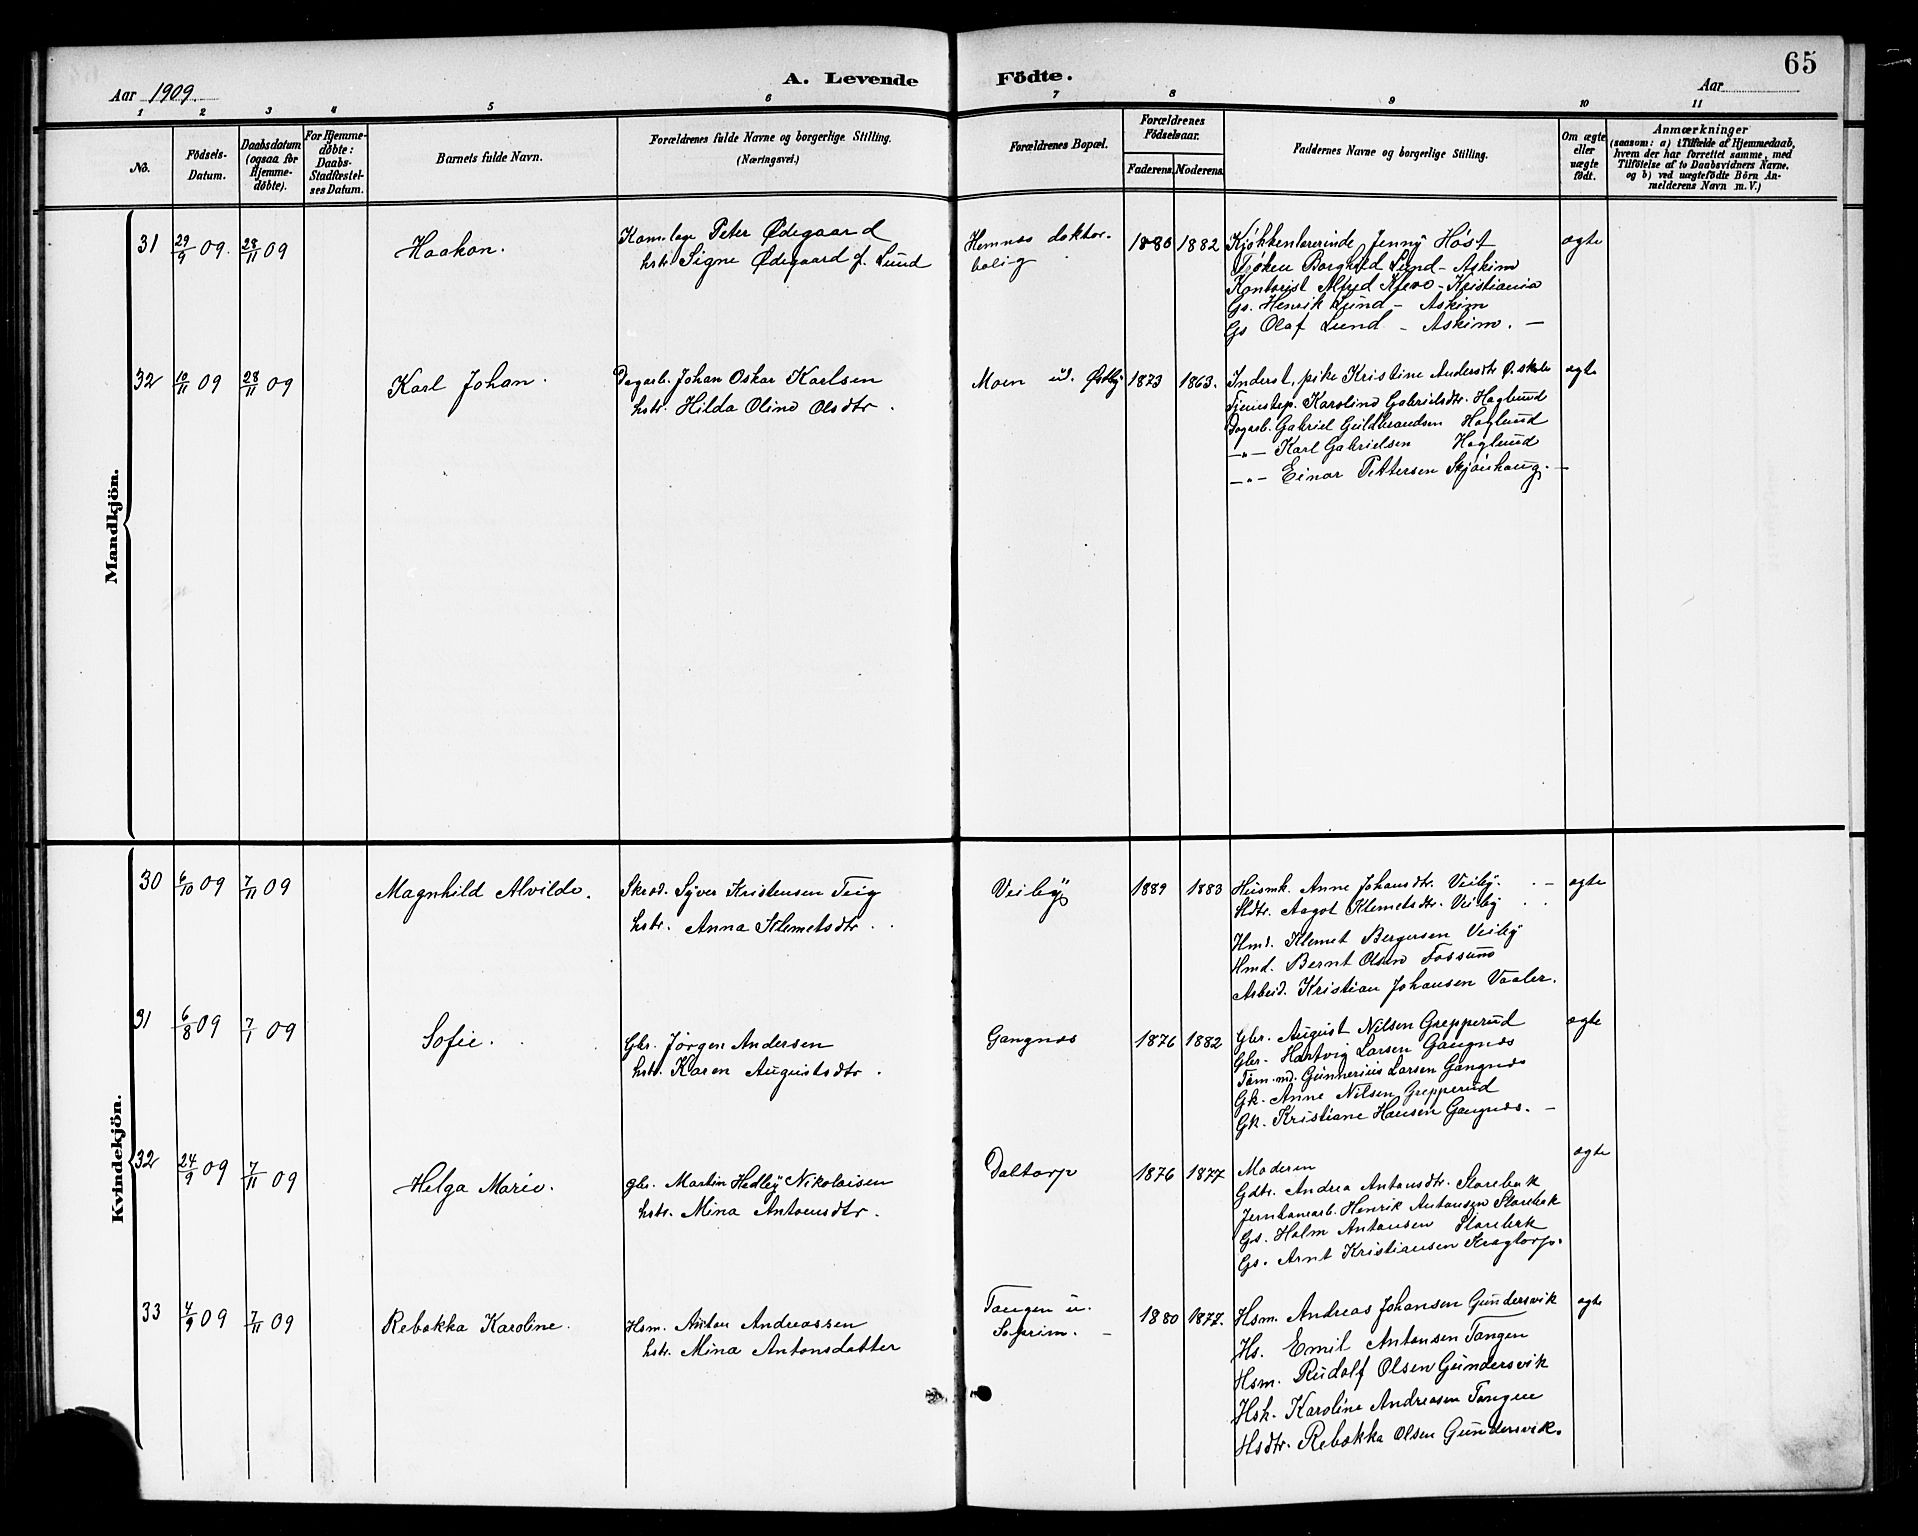 65
Aar 1909.
A. Levende Födte.
Aar
1 2 3 4 5 6 7 8 9 10 11
No.
Födsels-Datum.
Daabsdatum (ogsaa for Hjemme-döbte).
For Hjemme-döbte: Daabs-Stadfæstel-ses Datum.
Barnets fulde Navn.
Forældrenes fulde Navne og borgerlige Stilling.
(Næringsvei.)
Forældrenes Bopæl.
Forældrenes Födselsaar.
Faderens. Moderens.
Faddernes Navne og borgerlige Stilling.
Om ægte eller uægte födt.
Anmærkninger
(saasom: a) i Tilfælde af Hjemmedaab,
hvem der har forrettet samme, med
Tilföielse af to Daabsvidners Navne.
og b) ved uægtefödte Börn An-
melderens Navn m. V.)
Mandkjön.
31 29/9 09. 28/11 09 Haakon.
Kom.læge Peter Ødegaard
hstr. Signe Ødegaard f. Lund
Hemnæs doktor-
bolig
1880 1882
Kjøkkenlærerinde Jenny Høst
Frøken Borghild Lund - Askim
Kontorist Alfred - Kristiania
Gs. Henrik Lund - Askim
Gs Olaf Lund - Askim. -
ægte
32 10/11 09 28/11 09 Karl Johan.
Dagarb. Johan Oskar Karlsen
hstr. Hilda Oline Olsdtr.
Moen u. Østby
1873 1863.
Inderst, pike Kristine Andersdtr
Tjenestep. Karoline Gabrielsdtr. Haglund
Dagarb. Gabriel Guldbrandsen Haglund
-"- Karl Gabrielsen Haglund
-"- Einar Pettersen Skjønhaug. -
ægte
Kvindekjön.
30 6/10 09 7/11 09 Magnhild Alvilde.
Skræd. Syver Kristensen Teig
hstr. Anna Klemetsdtr.
Veiby
1889 1883
Husmk. Anne Johansdtr. Veiby. -
Aagot Klemetsdtr. Veiby
Hmd. Klemet Bergersen Veiby
Hmd. Bernt Olsen Fossum
Arbeid. Kristian Johansen Vaaler.
ægte
31 6/8 09 7/1 09 Sofie.
Gbr. Jørgen Andersen
hstr. Karen Augustsdtr.
Gangnæs
1876 1882
Gbr. August Nilsen Grepperud
Gbr. Hartvig Larsen Gangnæs
Tøm.md. Gunnerius Larsen Gangnæs
Gk. Anne Nilsen Grepperud
Gk. Kristiane Hansen Gangnæs. -
ægte
32 24/9 09 7/11 09 Helga Marie.
Gbr. Martin Hedley Nikolaisen
hstr. Mina Antonsdtr.
Daltorp
1876 1877
Moderen
Gdtr. Andrea Antonsdtr. Storebæk
Jernbanearb. Henrik Antonsen Storebæk
Gs. Holm Antonsen Storebæk
Gs. Arnt Kristiansen Kragtorp.
ægte
33 4/9 09 7/11 09 Rebekka Karoline.
Hsm. Anton Andreassen
hstr. Mina Antonsdatter
Tangen u.
Soprim. -
1880 1877.
Hsm. Andreas Johansen Gundersvik
Hs. Emil Antonsen Tangen
Hsm. Rudolf Olsen Gundersvik
Hsk. Karoline Andreasen Tangen
Hsdtr. Rebekka Olsen Gundersvik.
ægte